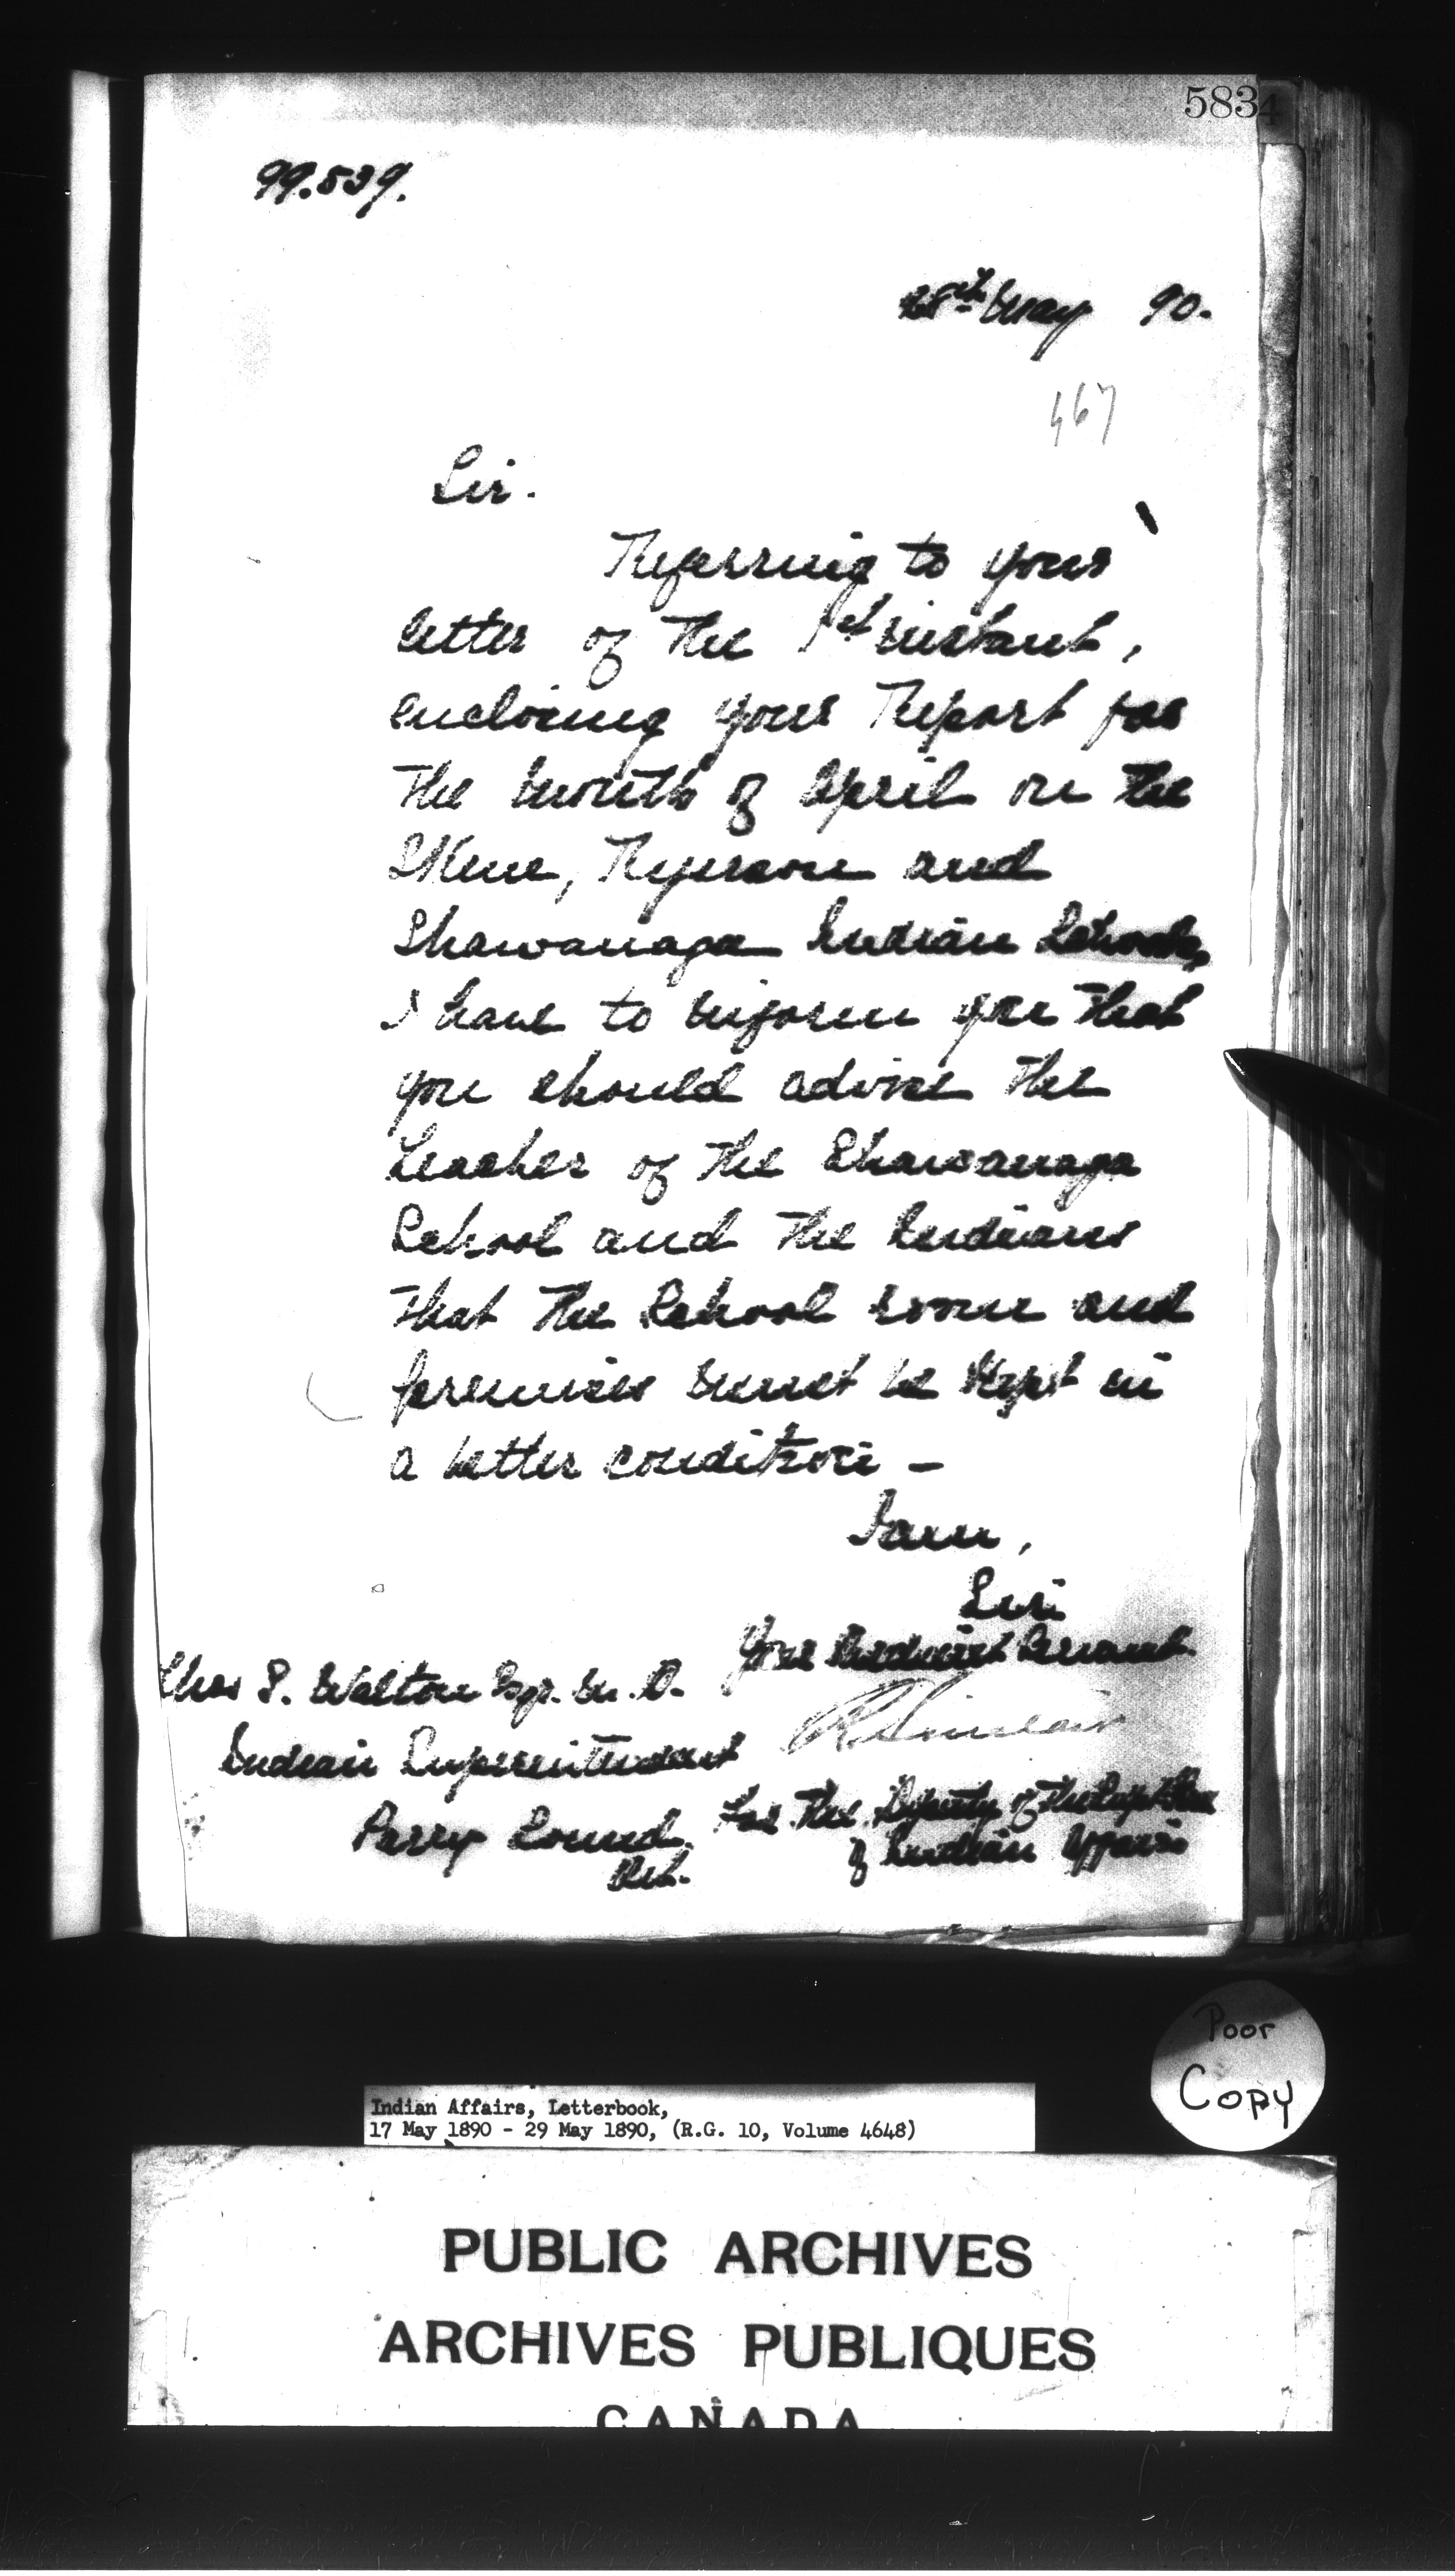 5834
99.539.
28th May 90.
467
Sir.
Referring to your
letter of the 1st instant,
enclosing your Report for
the month of April on the
Skene, Ryerson and
Shawanaga Indian Schools,
I have to inform you that
you should advise the
teacher of the Shawanaga
School and the Indians
that the School room and
premises must be kept in
a better condition —
I am,
Sir
Your obedient Servant
R Sinclair
For the Deputy of the Supt. Gen
of Indian Affairs
Chas S. Walton Esqr. M. D.
Indian Superintendent
Parry Sound.
Ont.
Poor
Copy
Indian Affairs, Letterbook,
17 May 1890 - 29 May 1890, (R.G. 10, Volume 4648)
PUBLIC ARCHIVES
ARCHIVES PUBLIQUES
CANADA